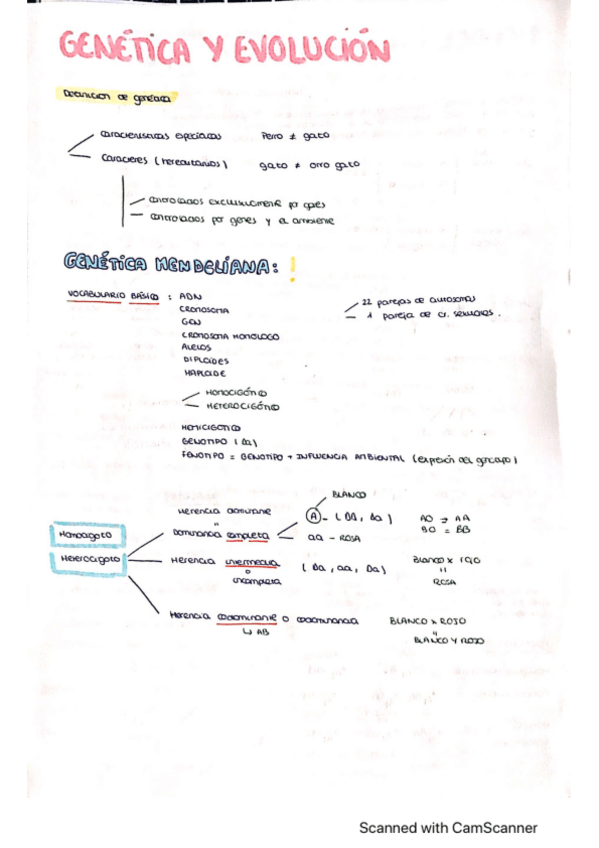 GENÉTICA Y EVOLUCIÓN
Definicion de genética
características especiacas perro ≠ gato
Caracteres (hereditarios) gato ≠ otro gato
controlados exclusivamente por genes
controlados por genes y el ambiente
GENÉTICA MENDELIANA: !
VOCABULARIO BÁSICO : ADN
CROMOSOMA
GEN
CROMOSOMA HOMOLOGO
ALELOS
DIPLOIDES
HAPLOIDE
22 parejas de autosomas
1 pareja de cr. sexuales.
HOMOCIGÓTICO
HETEROCIGÓTICO
HEMICIGOTICO
GENOTIPO (Aa)
FENOTIPO = GENOTIPO + INFLUENCIA AMBIENTAL (expresión del genotipo)
Homocigoto
Heterocigoto
Herencia dominante
"
Dominancia completa
BLANCO
A - (AA, Aa)
aa - ROSA
AO = AA
BO = BB
Herencia intermedia
o
incompleta
Blanco x rojo
"
ROSA
Herencia codominante o codominancia
↳ AB
BLANCO x ROJO
"
BLANCO Y ROJO
Scanned with CamScanner